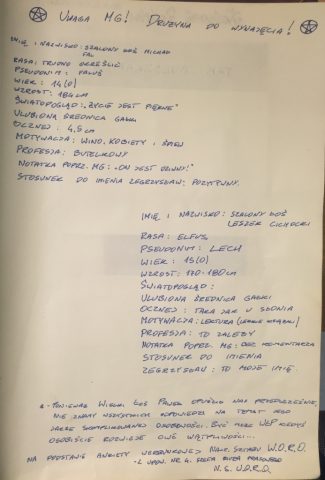 UWAGA MG! DRUŻYNA DO WYNAJĘCIA!
IMIĘ I NAZWISKO: SZALONY ŁOŚ MICHAŁ
RASA: TRUDNO OKREŚLIĆ
PSEUDONIM:
WIEK: 14(0)
WZROST: 184 cm
ŚWIATOPOGLĄD: „ŻYCIE JEST PIĘKNE"
ULUBIONA ŚREDNICA GAŁKI
OCZNEJ: 4,5 cm
MOTYWACJA: WINO, KOBIETY I ŚPIEW
PROFESJA: BUTELKOWY
NOTATKA POPRZ. MG: „ON JEST DZIWNY!"
STOSUNEK DO IMIENIA ZEGRZYSŁAW: POZYTYWNY.
IMIĘ I NAZWISKO: SZALONY ŁOŚ
LESZEK CICHOCKI
RASA: ELFUS
PSEUDONIM: LECH
WIEK: 15(0)
WZROST: 170-180 cm
ŚWIATOPOGLĄD:
ULUBIONA ŚREDNICA GAŁKI
OCZNEJ: TAKA JAK U SŁONIA
MOTYWACJA: LEKTURA
PROFESJA: TO ZALEŻY
NOTATKA POPRZ. MG: BEZ KOMENTARZA
STOSUNEK DO IMIENIA
ZEGRZYSŁAW: TO MOJE IMIĘ.
PONIEWAŻ WIELKI ŁOŚ PAWEŁ OPUŚCIŁ NAS PRZEDWCZEŚNIE,
NIE ZNAMY WSZYSTKICH ODPOWIEDZI NA TEMAT JEGO
JAKŻE SKOMPLIKOWANEJ OSOBOWOŚCI. BYĆ MOŻE KIEDYŚ
OSOBIŚCIE ROZWIEJE OWE WĄTPLIWOŚCI...
NA PODSTAWIE ANKIETY WERBUNKOWEJ NACZ. SZTABU W.O.R.D.
Z UPOW. NR 4. SZEFA BIURA PRASOWEGO
N.S. W.O.R.D.